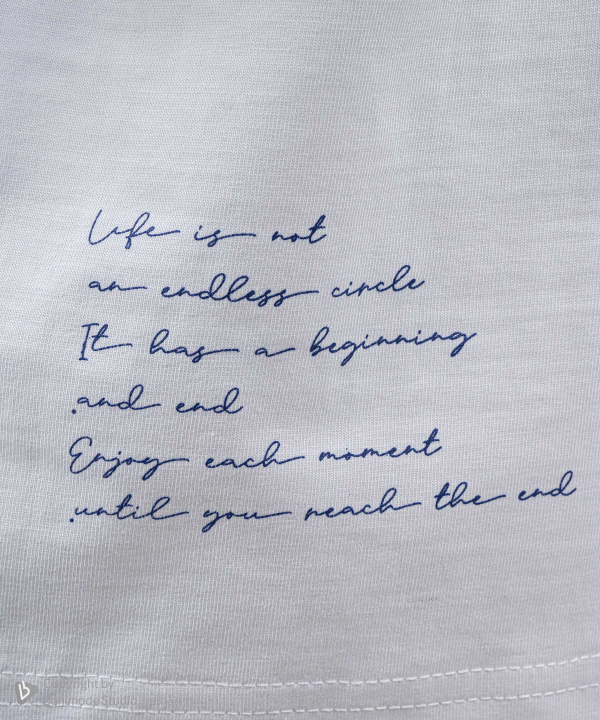 Life is not
an endless circle
It has a beginning
.and end
Enjoy each moment
.until you reach the end
Studio